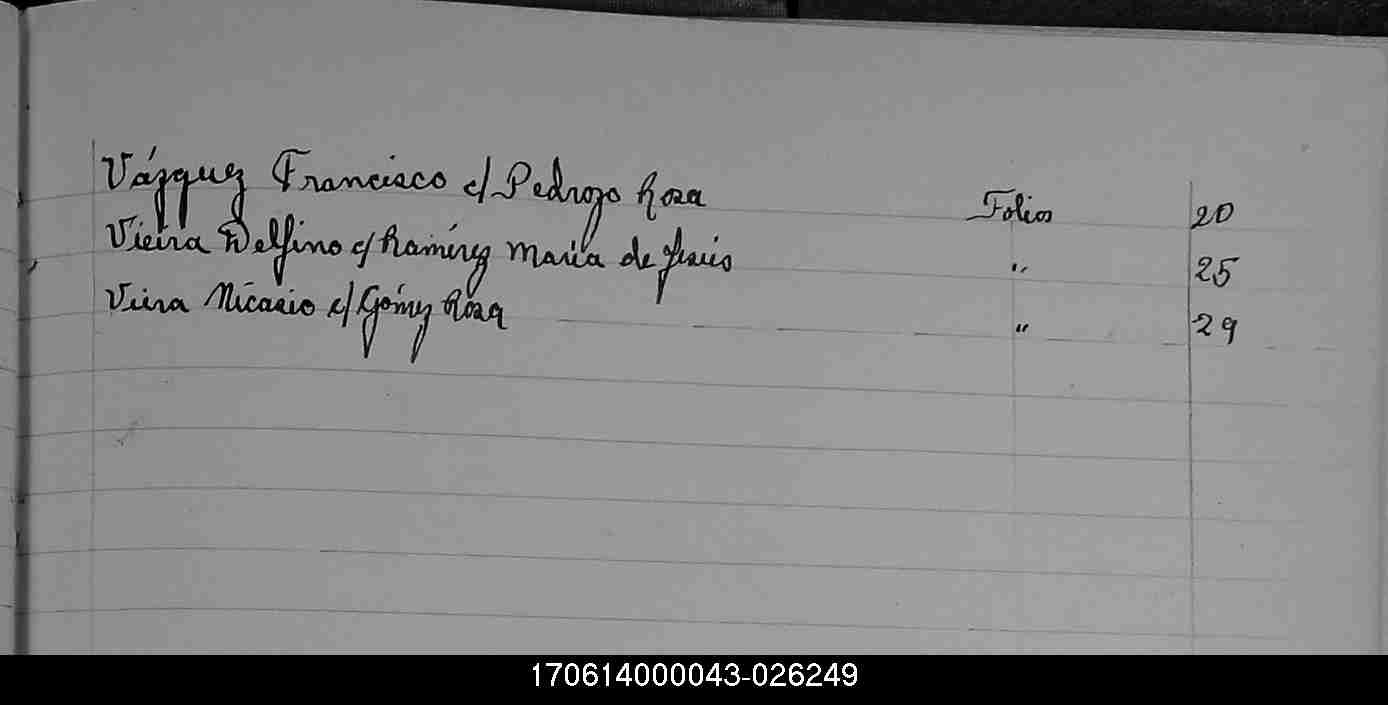 Vázquez Francisco c/ Pedrozo Rosa Folios 20
Vieira Delfino c/ Ramírez María de Jesús " 25
Viera Nicasio c/ Gómez Rosa " 29
170614000043-026249